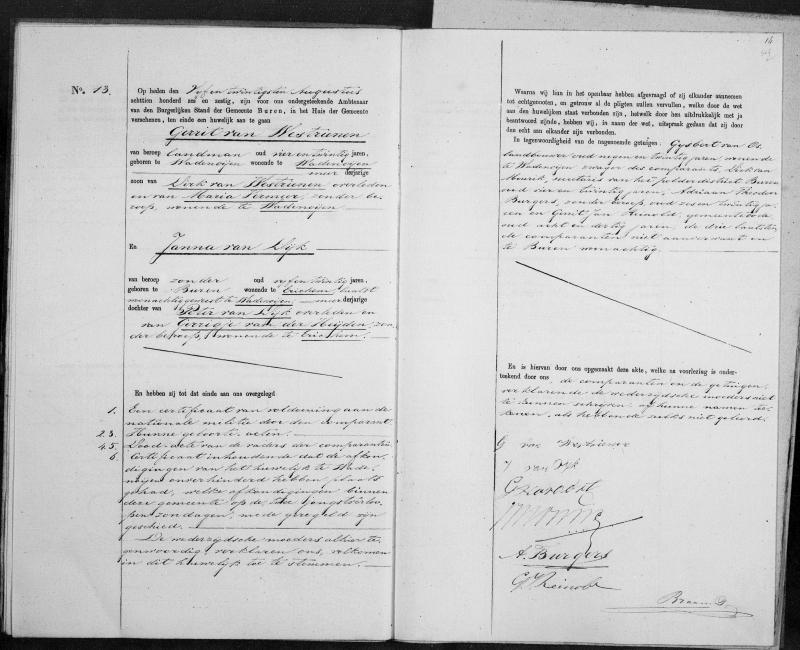 No. 13.
Op heden den Vijf en twintigsten Augustus
achttien honderd zes en zestig, zijn voor ons ondergeteekende Ambtenaar
van den Burgerlijken Stand der Gemeente Buren, in het Huis der Gemeente
verschenen, ten einde een huwelijk aan te gaan
Gerrit van Westrienen
van beroep landman oud vier en twintig jaren,
geboren te Wadenoijen wonende te Wadenoijen
meer derjarige
zoon van Dirk van Westrienen overleden
en van Maria zonder be-
roep, wonende te Wadenoijen
En Janna van Dijk
van beroep zonder oud vijf en twintig jaren,
geboren te Buren wonende te Erichem, laatst
woonachtig geweest te Wadenoijen, meer derjarige
dochter van Peter van Dijk overleden en
van Gerrigje van der Heijden, zon-
der beroep, wonende te Erichem.
En hebben zij tot dat einde aan ons overgelegd
1. Een certificaat van voldoening aan de
nationale militie door den comparant.
2.3. Hunne geboorte acten.
4.5. Dood-acte van de vaders der comparanten
6. Certificaat inhoudende dat de afkon-
digingen van het huwelijk te Wade-
noijen onverhinderd hebben plaats
gehad, welke afkondigingen binnen
deze gemeente op de twee jongstverlo-
pen zondagen, mede geregeld zijn
geschied.
De wederzijdsche moeders alhier te-
genwoordig, verklaren ons, volkomen
in dit huwelijk toe te stemmen.
14
Waarna wij hun in het openbaar hebben afgevraagd of zij elkander aannemen
tot echtgenooten, en getrouw al de pligten zullen vervullen, welke door de wet
aan den huwelijken staat verbonden zijn, hetwelk door hen uitdrukkelijk met ja
beantwoord zijnde, hebben wij, in naam der wet, uitspraak gedaan dat zij door
den echt aan elkander zijn verbonden.
In tegenwoordigheid van de nagenoemde getuigen: Gijsbert van Os
landbouwer oud negen en twintig jaren, wonende
te Wadenoijen zwager des comparants, Dirk van
Mourik, secretaris van het polderdistrict Buren
oud vier en twintig jaren, Adriaan Theodoor
Burgers, zonder beroep, oud zesen twintig ja-
ren en Gerrit Jan Reinold, gemeentebode
oud acht en dertig jaren, de drie laatsten
de comparanten niet aanverwant en
te Buren woonachtig.
En is hiervan door ons opgemaakt deze akte, welke na voorlezing is onder-
teekend door ons, de comparanten en de getuigen,
verklarende de wederzijdsche moeders niet
te kunnen schrijven of hunne namen tee-
kenen, als hebbende zulks niet geleerd.
G van Westrienen
J van Dijk
A. Burgers
GJ Reinold